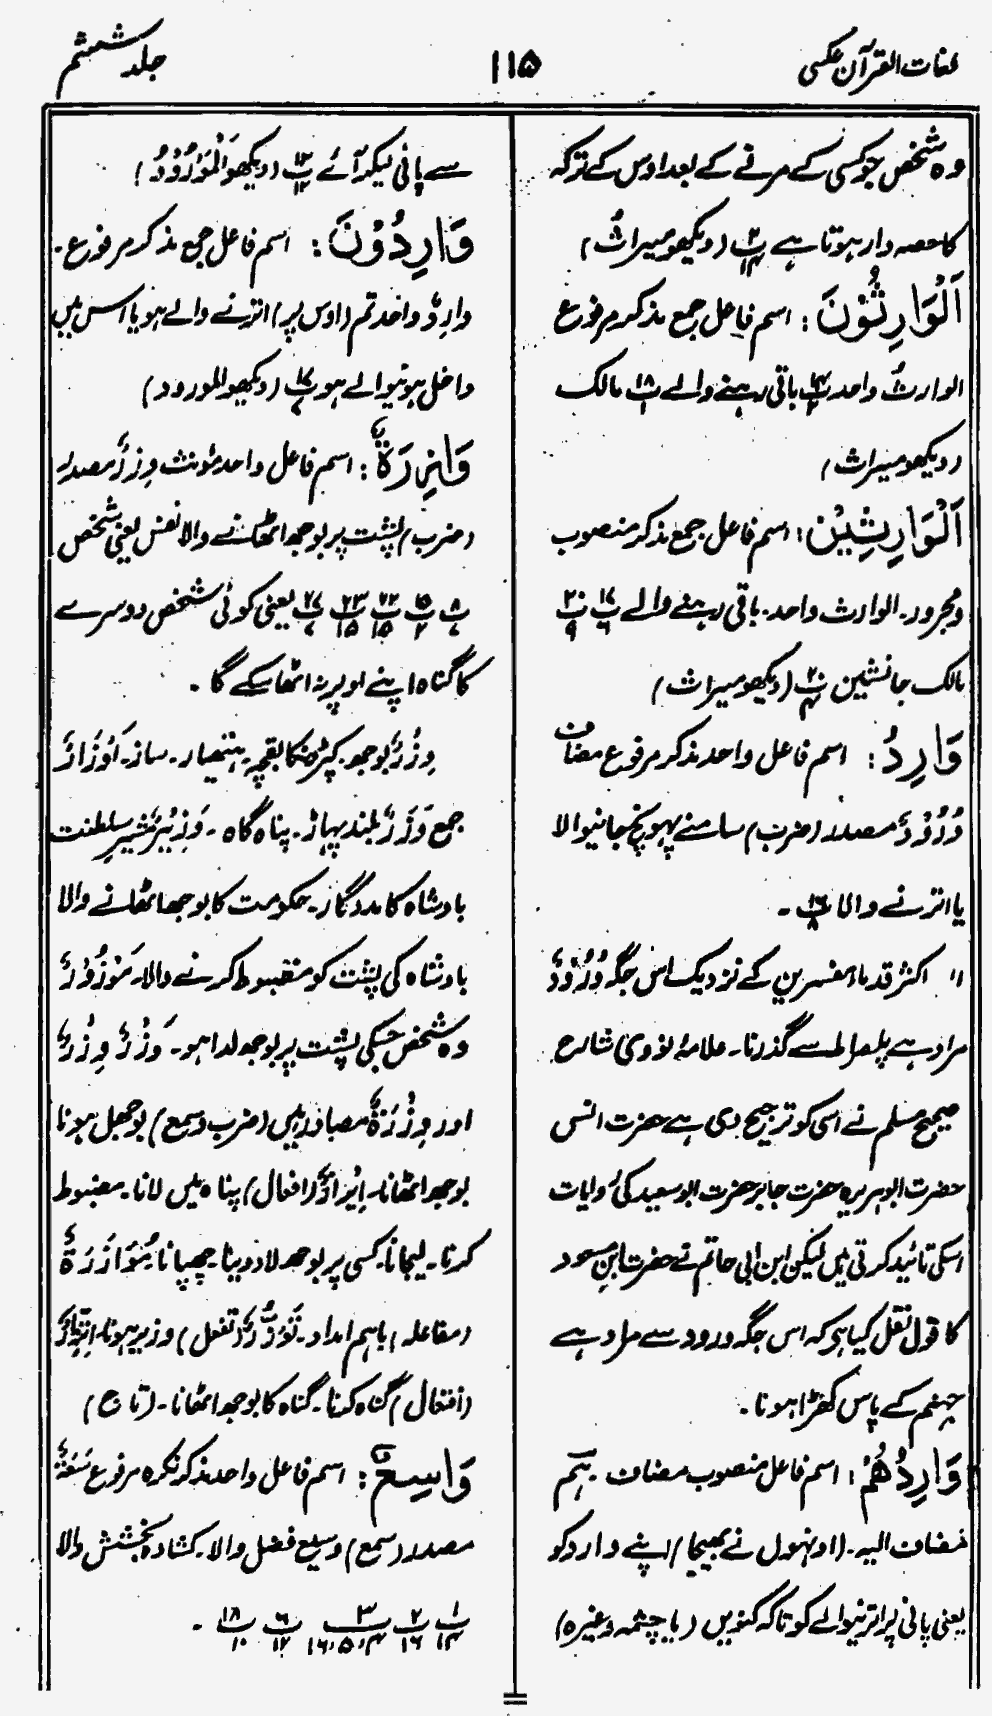 لغات القرآن عکسی
۱۱۵
جلد ششم
وہ شخص جو کسی کے مرنے کے بعد اوس کے ترکہ
کا حصہ دار ہوتا ہے پ ۲/۱۴ (دیکھو میراث)
اَلْوَارِثُوْنَ : اسم فاعل جمع مذکر مرفوع
الوارث واحد پ باقی رہنے والے پ ۱۸/۱ مالک
(دیکھو میراث)
اَلْوَارِثِیْن : اسم فاعل جمع مذکر منصوب
و مجرور۔ الوارث واحد۔ باقی رہنے والے پ ۱۷/۶ پ ۲۰/۹
مالک جانشین پ (دیکھو میراث)
وَارِدُ : اسم فاعل واحد مذکر مرفوع مضاف
وُرُوْدٌ مصدر (ضرب) سامنے پہونچ جانیوالا
یا اترنے والا پ ۱۶/۸ ۔
اکثر قدماء مفسرین کے نزدیک اس جگہ وُرُوْدٌ
مراد ہے پلصراط سے گذرنا۔ علامۂ نووی شارح
صحیح مسلم نے اسی کو ترجیح دی ہے حضرت انس
حضرت ابوہریرہ حضرت جابر حضرت ابوسعید کی روایات
اسکی تائید کرتی ہیں لیکن ابن ابی حاتم نے حضرت ابن مسعود
کا قول نقل کیا ہے کہ اس جگہ ورود سے مراد ہے
جہنم کے پاس کھڑا ہونا۔
وَارِدُهُمْ : اسم فاعل منصوب مضاف۔ ہم
مضاف الیہ۔ (اونہوں نے بھیجا) اپنے وارد کو
یعنی پانی پر اترنیوالے کو تاکہ کنویں (یا چشمہ وغیرہ)
سے پانی لیکر آئے پ ۱۲/۱۲ (دیکھو اَلْمَوْرُوْدُ)
وَارِدُوْنَ : اسم فاعل جمع مذکر مرفوع۔
وارِدٌ واحد تم (اوس پر) اترنے والے ہو یا اس میں
داخل ہونیوالے ہو پ ۱۷/۷ (دیکھو المورود)
وَازِرَةٌ : اسم فاعل واحد مؤنث وِزْرٌ مصدر
(ضرب) پشت پر بوجھ اٹھانے والا نفس یعنی شخص
پ ۸/۷ پ ۱۵/۲ پ ۲۲/۱۵ پ ۲۳/۱۵ پ ۲۷/۷ یعنی کوئی شخص دوسرے
کا گناہ اپنے اوپر نہ اٹھا سکے گا ۔
وِزْرٌ بوجھ۔ کپڑونکا بقچہ۔ ہتھیار۔ ساز۔ اَوْزَارٌ
جمع وَزَرٌ بلند پہاڑ۔ پناہ گاہ ۔ وَزِیْرٌ مشیر سلطنت
بادشاہ کا مددگار۔ حکومت کا بوجھ اٹھانے والا
بادشاہ کی پشت کو مضبوط کرنے والا۔ مَوْزُوْرٌ
وہ شخص جسکی پشت پر بوجھ لدا ہو۔ وَزْرٌ وِزْرٌ
اور وِزْرَةٌ مصادر ہیں (ضرب و سمع) بوجھل ہونا
بوجھ اٹھانا۔ اِیْزَارٌ (افعال) پناہ میں لانا۔ مضبوط
کرنا۔ لیجانا۔ کسی پر بوجھ لاد دینا۔ چھپانا مُوَازَرَةٌ
(مفاعلہ) باہم امداد۔ تَوَزُّرٌ (تفعل) وزیر ہونا۔ اِتِّزَارٌ
(افتعال) گناہ کرنا۔ گناہ کا بوجھ اٹھانا۔ (تاج)
وَاسِعٌ : اسم فاعل واحد مذکر نکرہ مرفوع سَعَةٌ
مصدر (سمع) وسیع فضل والا۔ کشادہ بخشش والا
پ ۱/۱۴ پ ۲/۱۶ پ ۳/۴،۵،۱۶ پ ۶/۱۲ پ ۱۸/۱۰ ۔